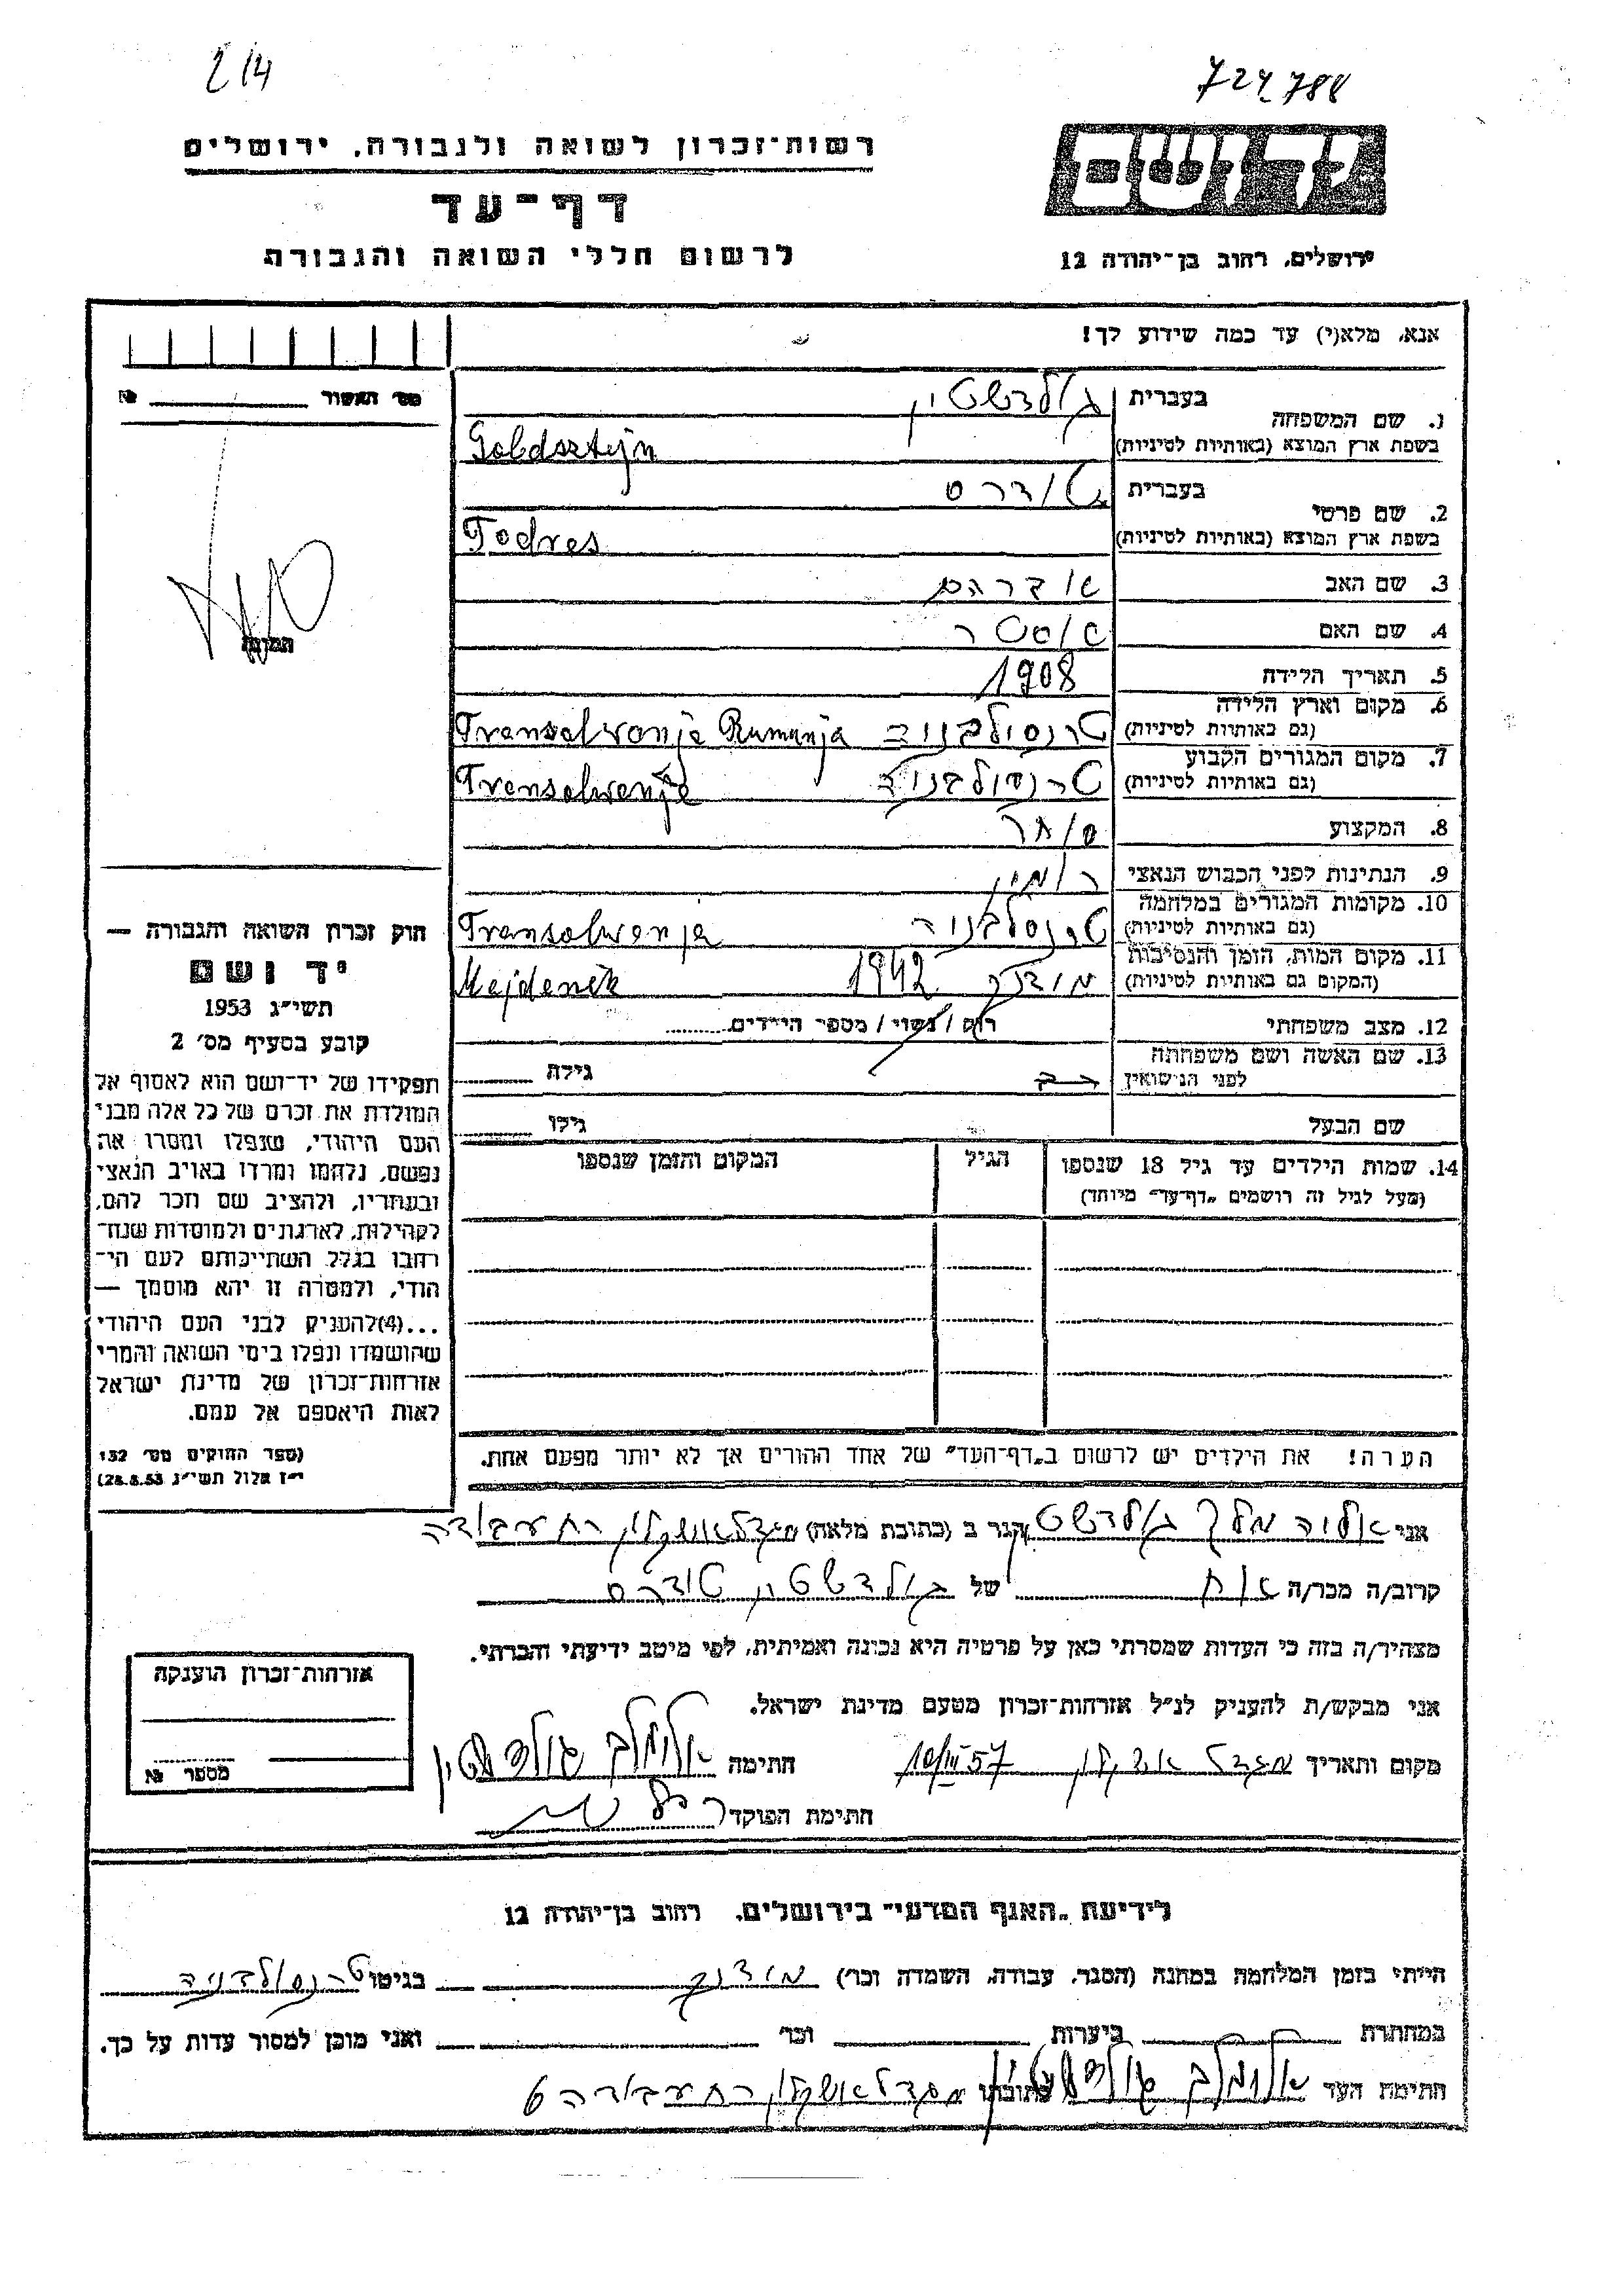 2/4
724,788
רשות-זכרון לשואה ולגבורה, ירושלים
דף-עד
לרשום חללי השואה והגבורה
יד ושם
ירושלים, רחוב בן-יהודה 12
אנא, מלא(י) עד כמה שידוע לך!
מס׳ האשור № 
1. שם המשפחה בעברית גולדשטיין
בשפת ארץ המוצא (באותיות לטיניות) Goldsztejn
2. שם פרטי בעברית טודרס
בשפת ארץ המוצא (באותיות לטיניות) Todres
3. שם האב אברהם
4. שם האם אסטר
5. תאריך הלידה 1908
6. מקום וארץ הלידה טרנסולבניה Transelwanja Rumanja
(גם באותיות לטיניות)
7. מקום המגורים הקבוע טרנסולבניה Transelwanja
(גם באותיות לטיניות)
8. המקצוע סוחר
9. הנתינות לפני הכבוש הנאצי
10. מקומות המגורים במלחמה טרנסלבניה Transolwanja
(גם באותיות לטיניות)
11. מקום המות, הזמן והנסיבות 1942 Majdenek
(המקום גם באותיות לטיניות)
12. מצב משפחתי רוק / נשוי / מספר הילדים
13. שם האשה ושם משפחתה גילה
לפני הנישואין
שם הבעל גילו
14. שמות הילדים עד גיל 18 שנספו הגיל המקום והזמן שנספו
(מעל לגיל זה רושמים „דף-עד״ מיוחד)
הערה! את הילדים יש לרשום ב„דף-העד״ של אחד ההורים אך לא יותר מפעם אחת.
התמונה
חוק זכרון השואה והגבורה —
יד ושם
תשי״ג 1953
קובע בסעיף מס׳ 2
תפקידו של יד-ושם הוא לאסוף אל
המולדת את זכרם של כל אלה מבני
העם היהודי, שנפלו ומסרו את
נפשם, נלחמו ומרדו באויב הנאצי
ובעוזריו, ולהציב שם וזכר להם,
לקהילות, לארגונים ולמוסדות שנח־
רבו בגלל השתייכותם לעם הי־
הודי, ולמטרה זו יהא מוסמך —
...(4)להעניק לבני העם היהודי
שהושמדו ונפלו בימי השואה והמרי
אזרחות-זכרון של מדינת ישראל
לאות היאספם אל עמם.
(ספר החוקים מס׳ 132
י״ז אלול תשי״ג 28.8.53)
אני אלימלך גולדשטיין הגר ב (כתובת מלאה) מגדל אשקלון רח עבודה
קרוב/ה מכר/ה אח של גולדשטין טודרס
מצהיר/ה בזה כי העדות שמסרתי כאן על פרטיה היא נכונה ואמיתית, לפי מיטב ידיעתי והכרתי.
אני מבקש/ת להעניק לנ״ל אזרחות-זכרון מטעם מדינת ישראל.
מקום ותאריך מגדל אשקלון 10/III 57 חתימה אלימלך גולדשטיין
חתימת הפוקד
אזרחות-זכרון הוענקה
מספר №
לידיעת „האגף המדעי״ בירושלים, רחוב בן-יהודה 12
הייתי בזמן המלחמה במחנה (הסגר, עבודה, השמדה וכו׳) בגיטו טרנסולבניה
במחתרת ביערות וכו׳ ואני מוכן למסור עדות על כך.
חתימת העד אלימלך גולדשטיין כתובתו מגדל אשקלון רח עבודה 6